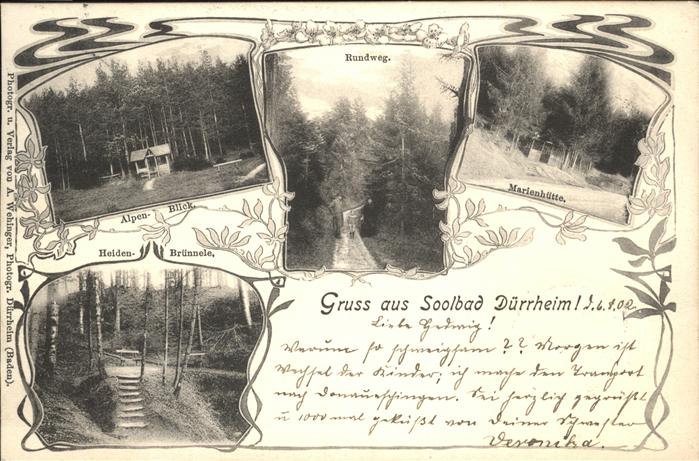 Rundweg.
Alpen- Blick.
Marienhütte.
Heiden- Brünnele.
Photogr. u. Verlag von A. Wehinger, Photogr. Dürrheim (Baden).
Gruss aus Soolbad Dürrheim! 1.6.1902
Liebe Hedwig!
Warum so schweigsam?? Morgen ist
Wechsel der Kinder, ich mache den Transport
nach Donaueschingen. Sei herzlich gegrüßt
u 1000 mal geküßt von Deiner Schwester
Veronika.